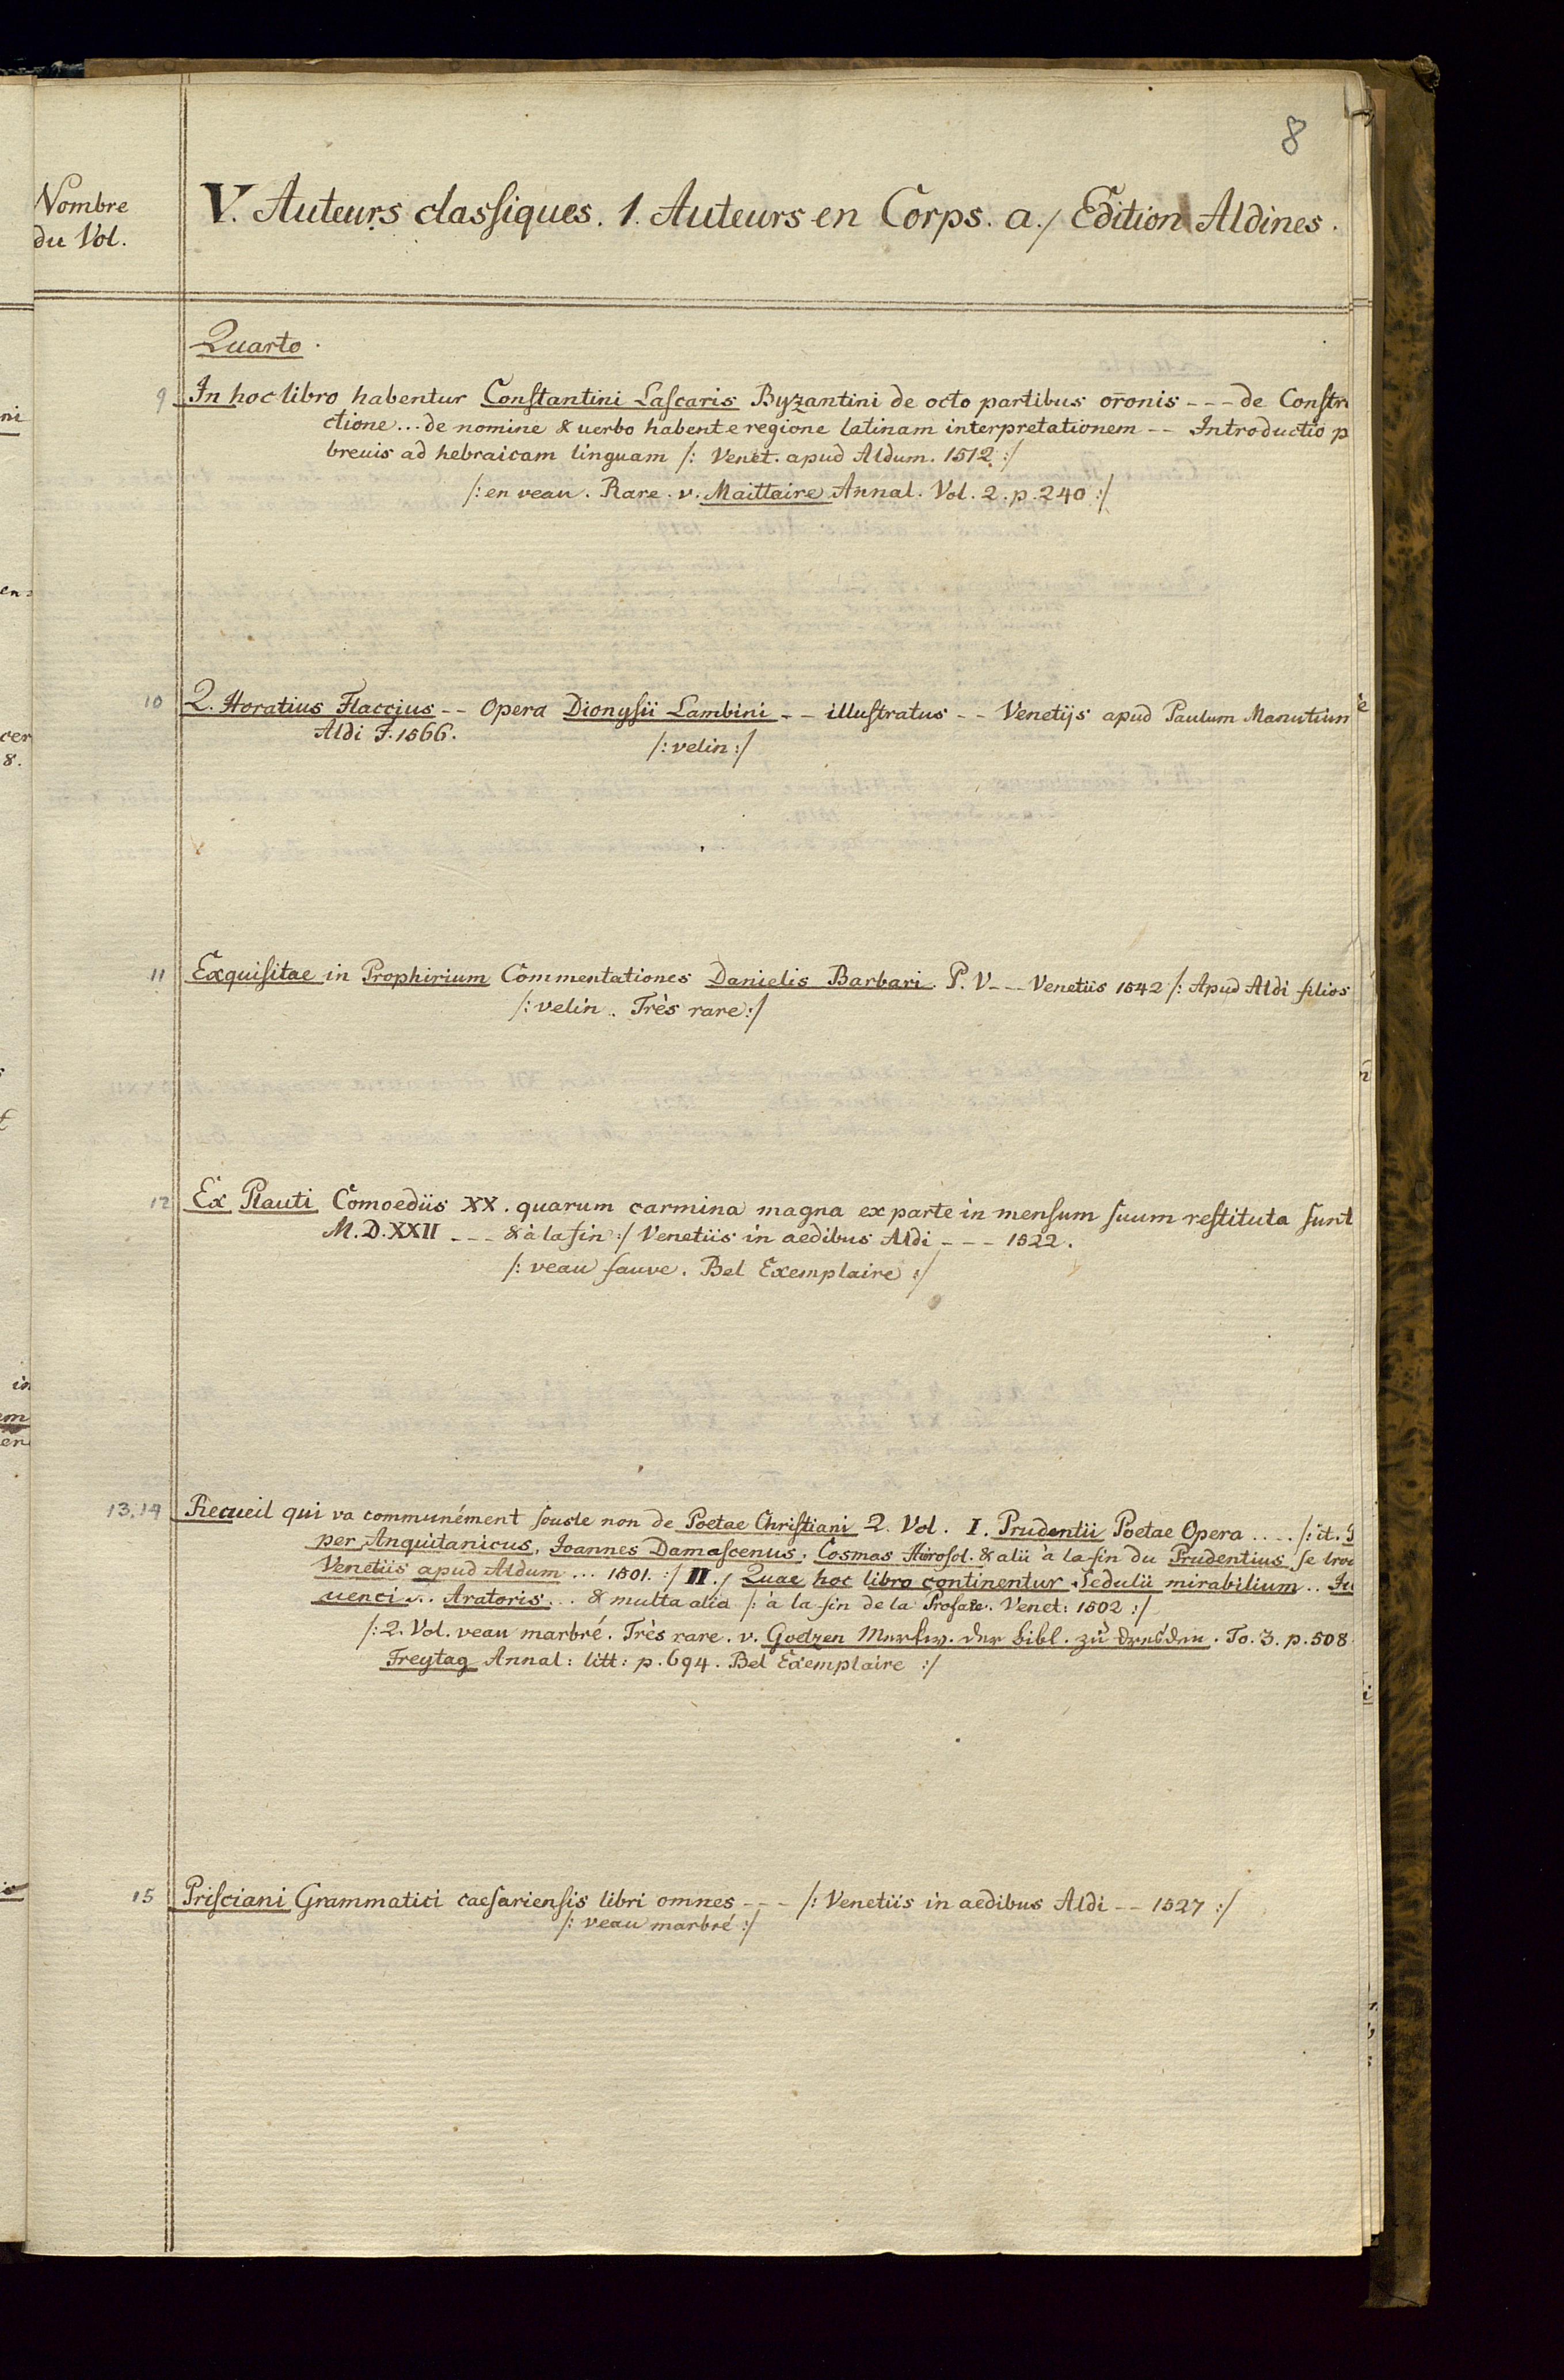 8
Nombre du Vol.
V. Auteurs classiques. 1. Auteurs en Corps. a./ Edition Aldines.
Quarto.
9 In hoc libro habentur Constantini Lascaris Byzantini de octo partibus orōnis --- de Constru
ctione... de nomine & uerbo habent e regione latinam interpretationem -- Introductio p
breuis ad hebraicam linguam /: Venet. apud Aldum. 1512 :/
/: en veau. Rare. v. Maittaire Annal. Vol. 2. p. 240 :/
10 Q. Horatius Flaccius -- Opera Dionysii Lambini -- illustratus -- Venetijs apud Paulum Manutium
Aldi F. 1566.
/: velin :/
11 Exquisitae in Prophirium Commentationes Danielis Barbari. P. V --- Venetiis 1542 /: Apud Aldi filios
/: velin. Très rare :/
12 Ex Plauti Comoediis XX. quarum carmina magna ex parte in mensum suum restituta sunt
M.D.XXII --- & à la fin :/ Venetiis in aedibus Aldi --- 1522.
/: veau fauve. Bel Exemplaire :/
13.14 Recueil qui va communément sous le non de Poetae Christiani 2. Vol. I. Prudentii Poetae Opera .... /: it.
per Anquitanicus, Joannes Damascenus, Cosmas Hierosol. & alii à la fin du Prudentius se trou
Venetiis apud Aldum ... 1501. :/ II./ Quae hoc libro continentur Sedulii mirabilium .. Iu
uenci ... Aratoris ... & multa alia /: à la fin de la Prefate. Venet: 1502 :/
/: 2. Vol. veau marbré. Très rare. v. Goetzen Merkw. der bibl. zü Dresden. To. 3. p. 508
Freytag Annal: litt: p. 694. Bel Exemplaire :/
15 Prisciani Grammatici caesariensis libri omnes --- /: Venetiis in aedibus Aldi -- 1527 :/
/: veau marbré :/